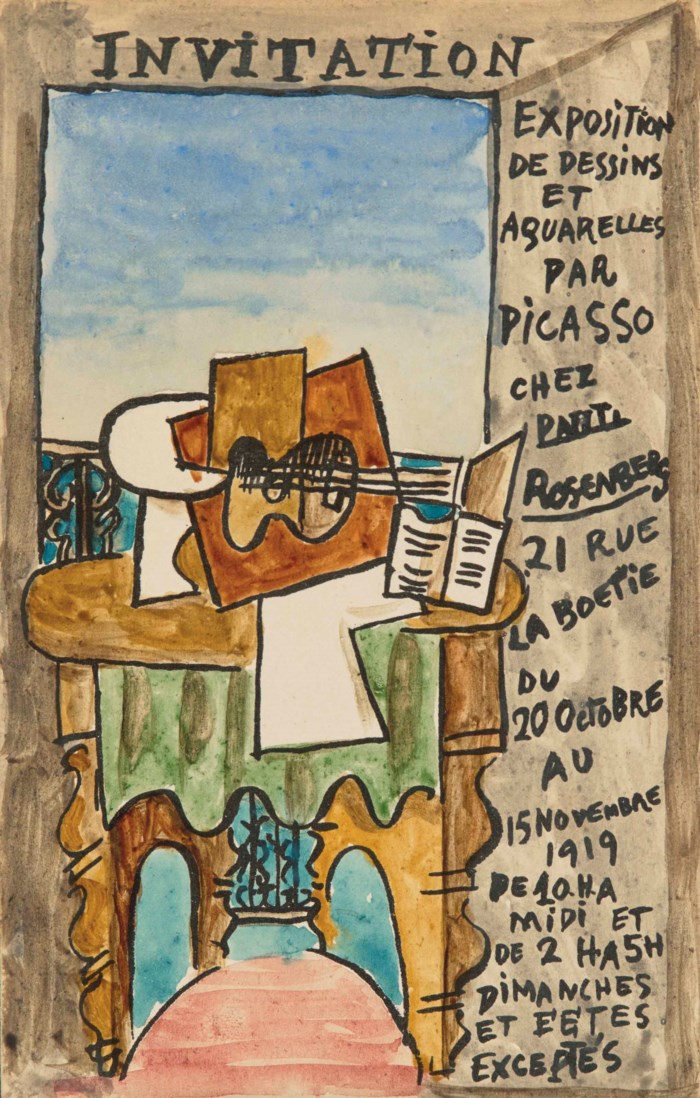 INVITATION
EXPOSITION
DE DESSINS
ET
AQUARELLES
PAR
PICASSO
CHEZ
PAUL
ROSENBERG
21 RUE
LA BOETIE
DU
20 OCTOBRE
AU
15 NOVEMBRE
1919
DE 10.H A
MIDI ET
DE 2 H A 5H
DIMANCHES
ET FÊTES
EXCEPTÉS